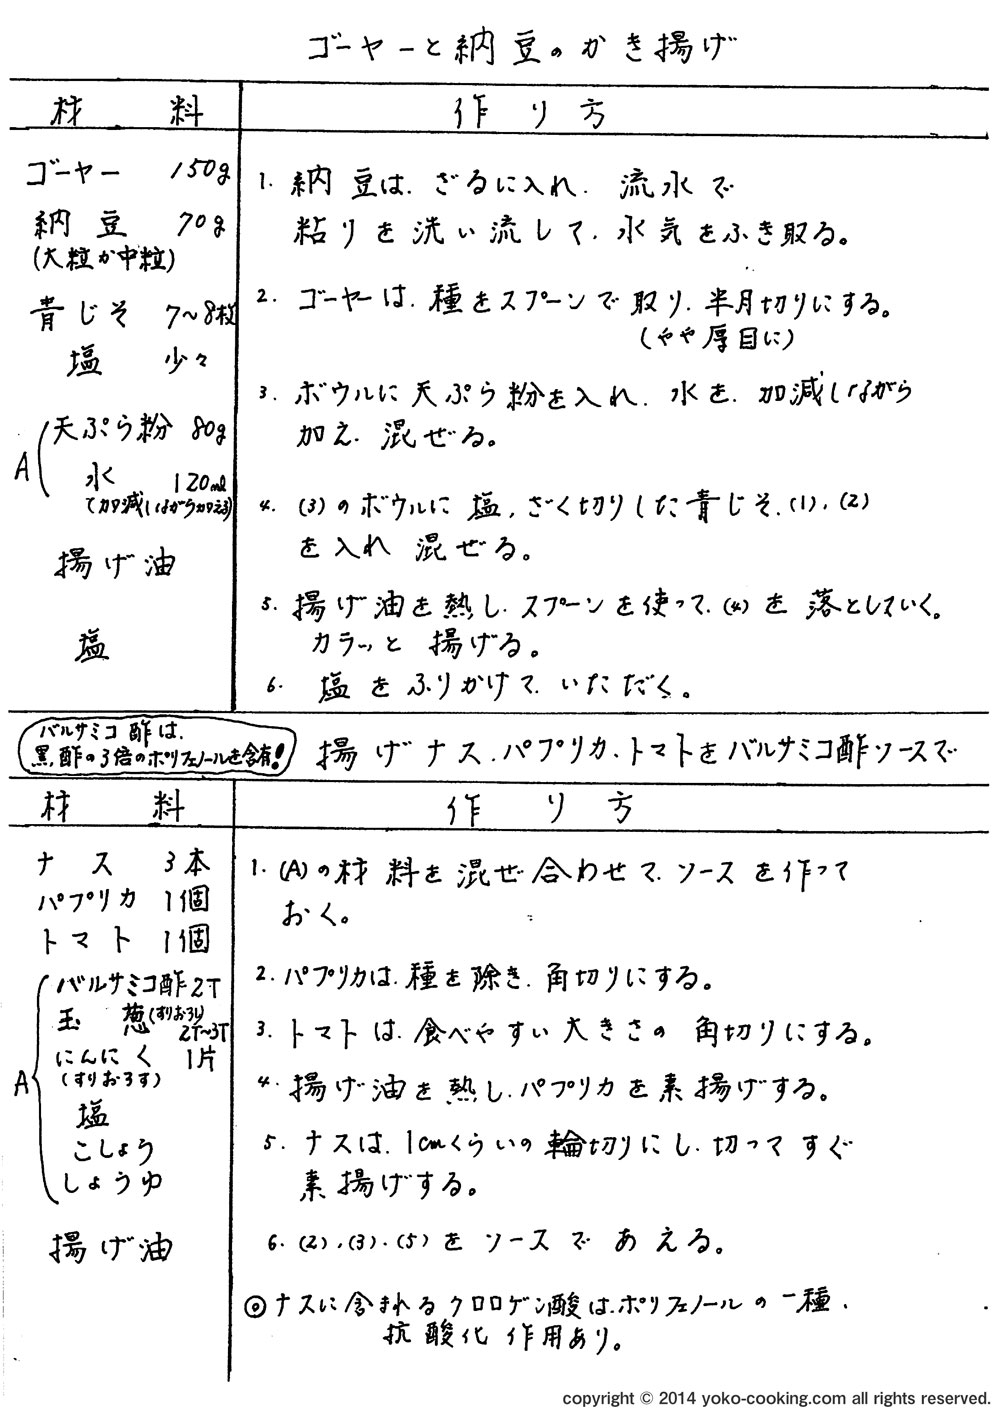 ゴーヤーと納豆のかき揚げ
材料
作り方
ゴーヤー 150g
納豆 70g
(大粒か中粒)
青じそ 7〜8枚
塩 少々
A
天ぷら粉 80g
水 120ml
(加減しながら加える)
揚げ油
塩
1. 納豆は、ざるに入れ、流水で
粘りを洗い流して、水気をふき取る。
2. ゴーヤーは、種をスプーンで取り、半月切りにする。
(やや厚目に)
3. ボウルに天ぷら粉を入れ、水を、加減しながら
加え、混ぜる。
4. (3)のボウルに塩、ざく切りした青じそ、(1)、(2)
を入れ混ぜる。
5. 揚げ油を熱し、スプーンを使って、(4)を落としていく。
カラッと揚げる。
6. 塩をふりかけて、いただく。
バルサミコ酢は、
黒酢の3倍のポリフェノールを含有!
揚げナス、パプリカ、トマトをバルサミコ酢ソースで
材料
作り方
ナス 3本
パプリカ 1個
トマト 1個
A
バルサミコ酢 2T
玉葱(すりおろし)
2T〜3T
にんにく 1片
(すりおろす)
塩
こしょう
しょうゆ
揚げ油
1. (A)の材料を混ぜ合わせて、ソースを作って
おく。
2. パプリカは、種を除き、角切りにする。
3. トマトは、食べやすい大きさの角切りにする。
4. 揚げ油を熱し、パプリカを素揚げする。
5. ナスは、1cmくらいの輪切りにし、切ってすぐ
素揚げする。
6. (2)、(3)、(5)をソースであえる。
◎ナスに含まれるクロロゲン酸は、ポリフェノールの一種、
抗酸化作用あり。
copyright © 2014 yoko-cooking.com all rights reserved.